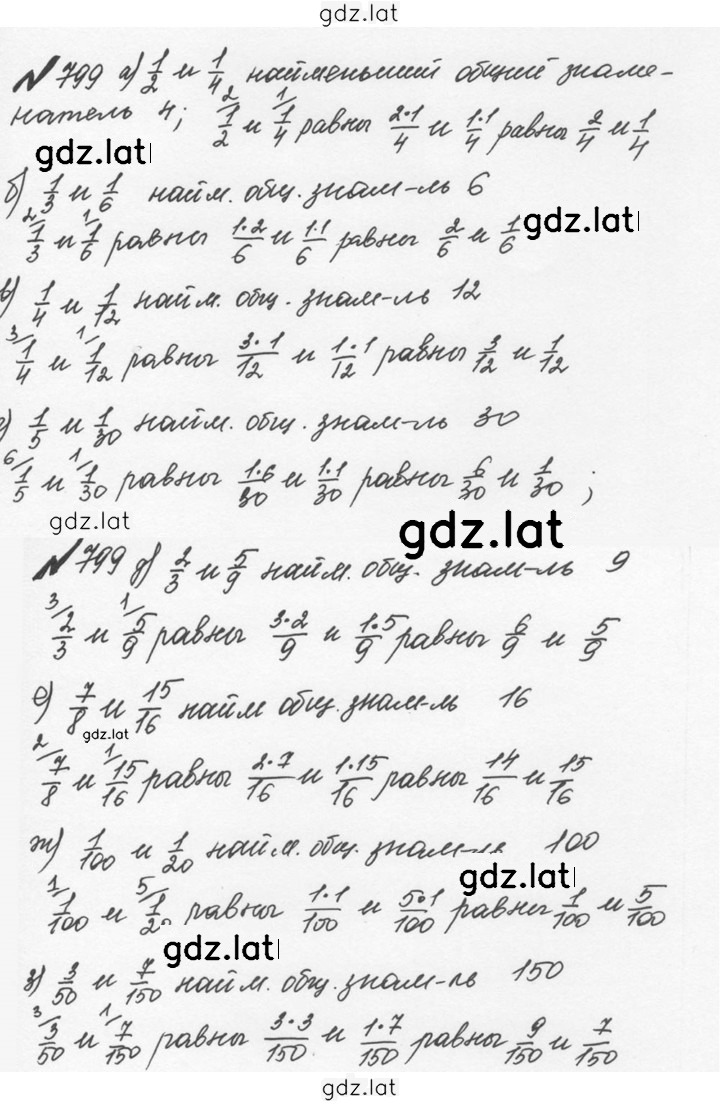 gdz.lat
№ 799 а) 1/2 и 1/4 найменьший общий знаме-
натель 4; 2/ 1/2 и 1/ 1/4 равны 2·1/4 и 1·1/4 равны 2/4 и 1/4
gdz.lat
б) 1/3 и 1/6 найм. общ. знам-ль 6
2/ 1/3 и 1/ 1/6 равны 1·2/6 и 1·1/6 равны 2/6 и 1/6
gdz.lat
в) 1/4 и 1/12 найм. общ. знам-ль 12
3/ 1/4 и 1/ 1/12 равны 3·1/12 и 1·1/12 равны 3/12 и 1/12
г) 1/5 и 1/30 найм. общ. знам-ль 30
6/ 1/5 и 1/ 1/30 равны 1·6/30 и 1·1/30 равны 6/30 и 1/30 ;
gdz.lat
gdz.lat
№ 799 д) 2/3 и 5/9 найм. общ. знам-ль 9
3/ 2/3 и 1/ 5/9 равны 3·2/9 и 1·5/9 равны 6/9 и 5/9
е) 7/8 и 15/16 найм общ. знам-ль 16
gdz.lat
2/ 7/8 и 1/ 15/16 равны 2·7/16 и 1·15/16 равны 14/16 и 15/16
ж) 1/100 и 1/20 найм. общ. знам-ль 100
gdz.lat
1/ 1/100 и 5/ 1/20 равны 1·1/100 и 5·1/100 равны 1/100 и 5/100
gdz.lat
з) 3/50 и 7/150 найм. общ. знам-ль 150
3/ 3/50 и 1/ 7/150 равны 3·3/150 и 1·7/150 равны 9/150 и 7/150
gdz.lat